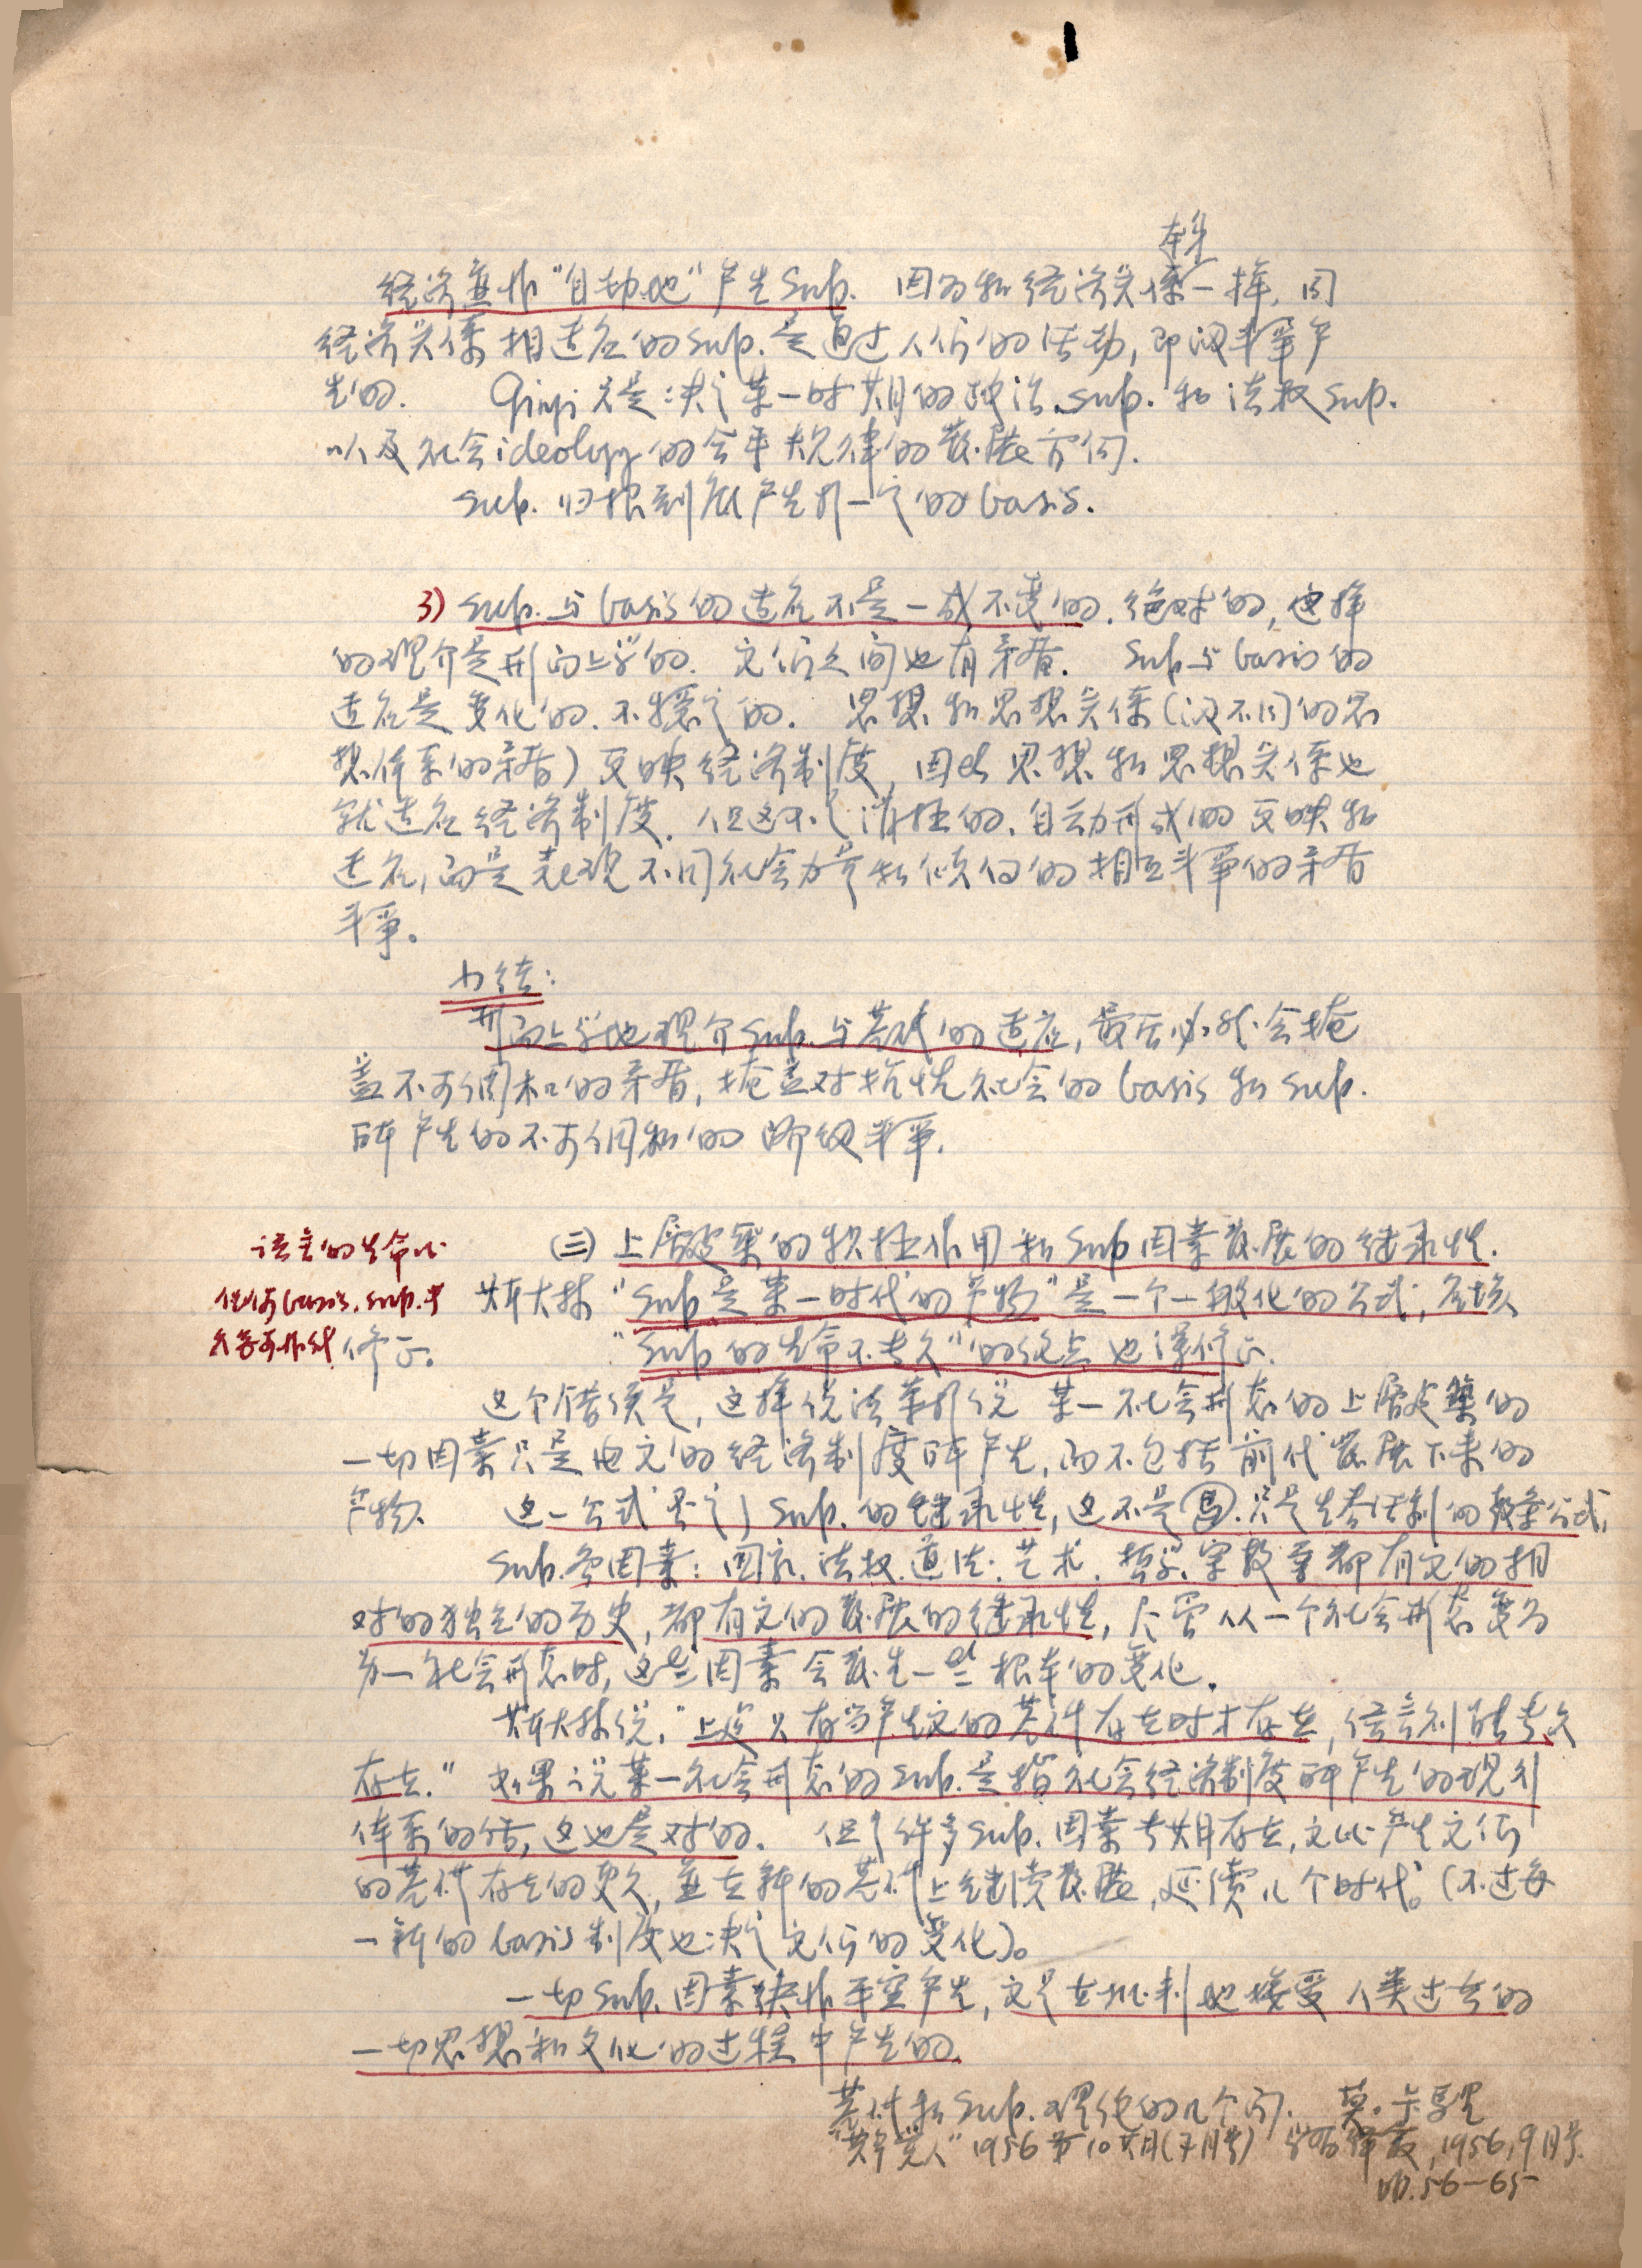 本身
经济并非“自动地”产生Sub. 因为和经济关係一样, 同
经济关係相适应的sub.是通过人们的活动, 即阶级斗争产
生的. 只是决定某一时期的政治sub.和法权sub.
以及社会ideology的合乎规律的发展方向.
Sub.归根到底产生于一定的basis.
3) Sub.与basis的适应不是一成不变的.绝对的, 这样
的理介是形而上学的. 它们之间也有矛盾. Sub与basis的
适应是变化的.不稳定的. 思想和思想关係(即不同的思
想体系的矛盾)反映经济制度, 因此思想和思想关係也
就适应经济制度. 但这不是消极的.自动形成的反映和
适应, 而是表现不同社会力量和倾向的相互斗争的矛盾
斗争。
小结:
形而上学地理介Sub.与基础的适应, 最后必然会掩
盖不可调和的矛盾, 掩盖对抗性社会的basis和sub.
所产生的不可调和的阶级斗争.
语言的生命比
任何basis.sub.
修正。
(三)上层建築的积极作用和Sub因素发展的继承性.
斯大林“Sub是某一时代的产物”是一个一般化的公式, 应该
“Sub的生命不长久”的论点也得修正.
这个错误是, 这样说法等于说某一社会形态的上层建築的
一切因素只是由它的经济制度所产生, 而不包括前代发展下来的
产物. 这一公式否定了Sub.的继承性, 这不是馬.只是生吞活剥的教条公式,
Sub.各因素: 国家.法权.道德.艺术.哲学.宗教等都有它的相
对的独立的历史, 都有它的发展的继承性, 尽管从一个社会形态变为
另一社会形态时, 这些因素会发生一些根本的变化.
斯大林说, “上建只有当产生它的基础存在时才存在, 语言则能长久
存在.” 如果说某一社会形态的Sub.是指社会经济制度所产生的观点
体系的话, 这也是对的. 但许多Sub.因素长期存在, 它比产生它们
的基础存在的更久, 並在新的基础上继续发展, 延续几个时代。(不过每
一新的basis制度也决定它们的变化)。
一切Sub.因素決非平空产生, 它是在批判地接受人类过去的
一切思想和文化的过程中产生的.
基础和Sub.理论的几个问. 莫.卡馬里
“共产党人” 1956第10期(7月号) 学习译丛, 1956, 9月号.
pp.56—65